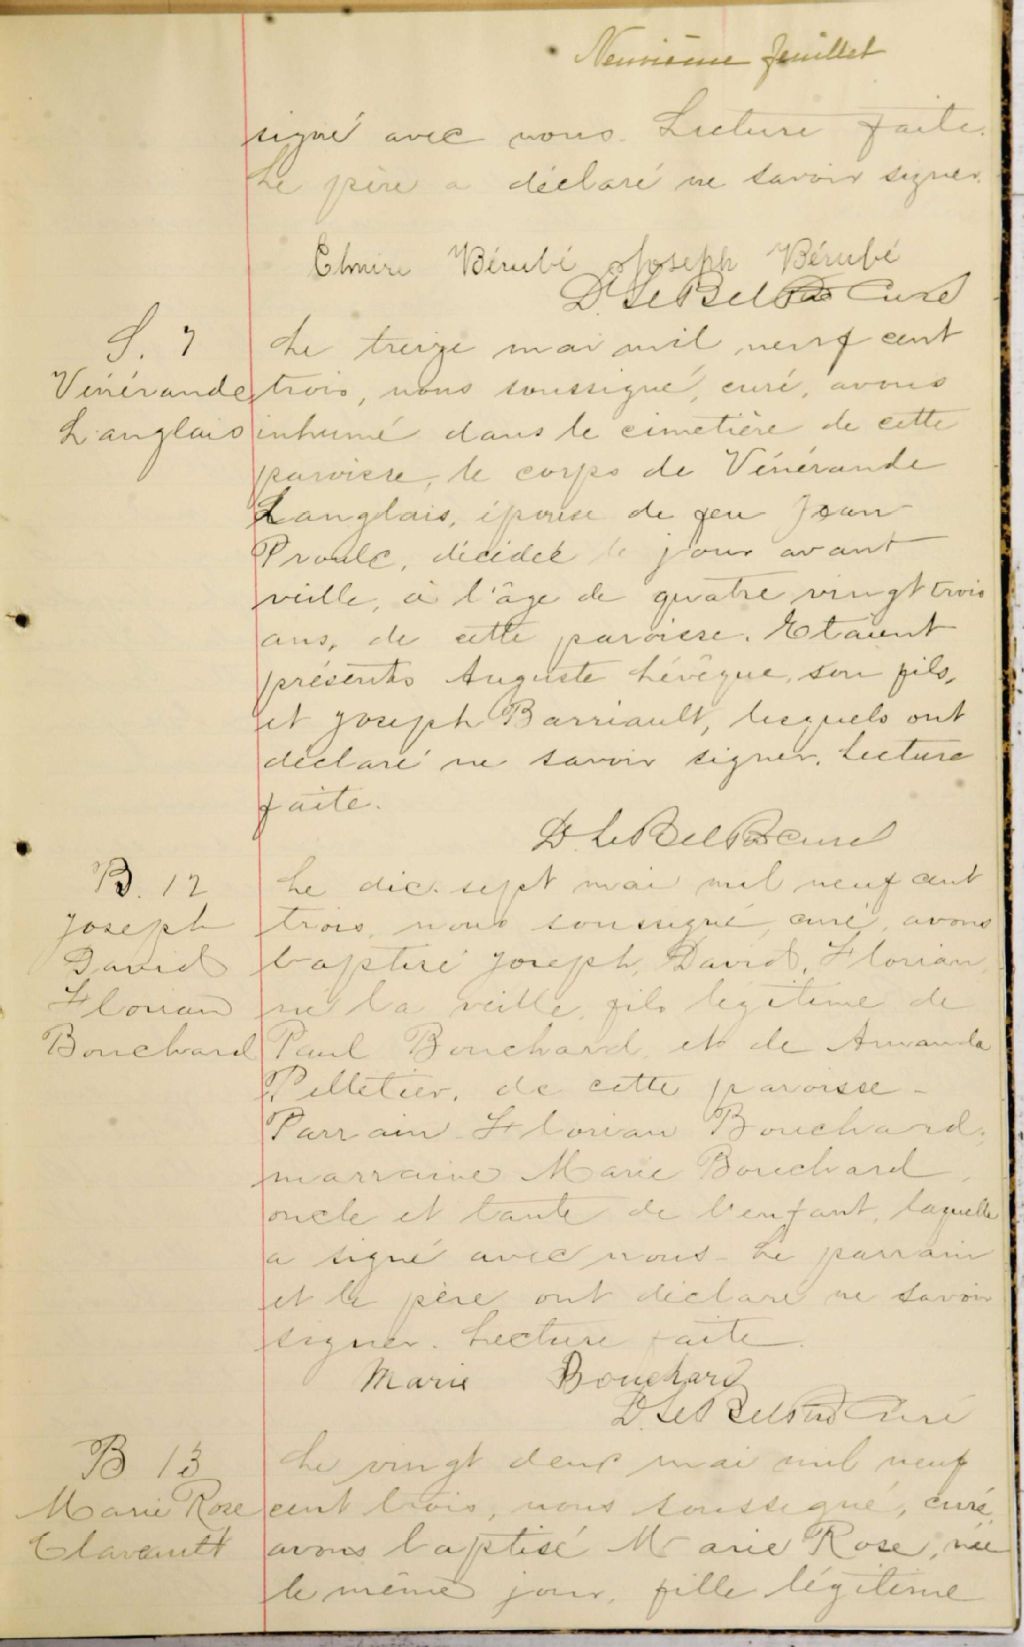 Neuvième feuillet
signé avec nous. Lecture faite.
Le père a déclaré ne savoir signer.
Elmire Bérubé Joseph Bérubé
D. LeBel Ptre Curé
S. 7
Vénérande
Langlais
Le treize mai mil neuf cent
trois, nous soussigné, curé, avons
inhumé dans le cimetière de cette
paroisse, le corps de Vénérande
Langlais, épouse de feu Jean
Proulx, décédée le jour avant
veille, à l'âge de quatre vingt trois
ans, de cette paroisse. Etaient
présents Auguste Lévêque, son fils,
et Joseph Barriault, lesquels ont
déclaré ne savoir signer. Lecture
faite.
D. LeBel Ptre Curé
B. 12
Joseph
David
Florian
Bouchard
Le dix-sept mai mil neuf cent
trois, nous soussigné, curé, avons
baptisé Joseph, David, Florian,
né la veille, fils légitime de
Paul Bouchard, et de Amanda
Pelletier, de cette paroisse -
Parrain Florian Bouchard,
marraine Marie Bouchard,
oncle et tante de l'enfant, laquelle
a signé avec nous - Le parrain
et le père ont déclaré ne savoir
signer. Lecture faite.
Marie Bouchard
D. LeBel Ptre Curé
B 13
Marie Rose
Le vingt deux mai mil neuf
cent trois, nous soussigné, curé,
avons baptisé Marie Rose, née
le même jour, fille légitime